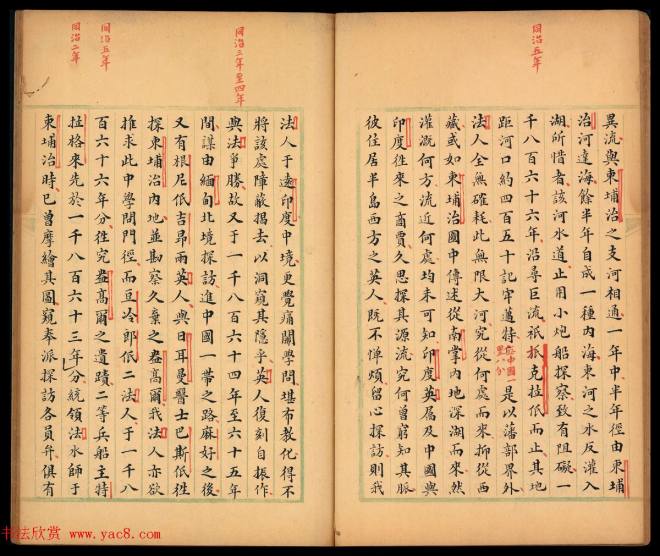 同治五年
異流與柬埔
治河達海餘半年自成一種內海東河之水反灌入
湖所惜者該河水道止用小炮船探察致有阻礙一
千八百六十六年沿尋巨流祇抵克拉低而止其地
距河口約四百五十記牢邁特是以藩部界外
法人全無確耗此無限大河究從何處而來抑從西
藏或如柬埔治國中傳述從南掌內地深湖而來然
灌溉何方流近何處均未可知印度英屬及中國與
印度往來之商賈久思探其源流究何曾窮知其脈
彼住居半島西方之英人既不憚煩留心採訪則我
同治三年至四年
同治五年
同治二年
法人于遠印度中境更覺痛關學問堪布教化得不
將該處障蔽揭去以洞窺其隱乎英人復刻自振作
與法爭勝故又于一千八百六十四年至六十五年
間謀由緬甸北境探訪進中國一帶之路麻好之後
又有根尼低吉昴兩英人與日耳曼醫士巴斯低往
探柬埔治內地並勘察久棄之盎高爾我法人亦欲
推求此中學問門徑而豆冷郎低二法人于一千八
百六十六年分往究盎高爾之遺蹟二等兵船主特
拉格來先於一千八百六十三年分統領法水師于
柬埔治時已曾摩繪其圖窺奉派探訪各員弁俱有
書法欣賞 www.yac8.com